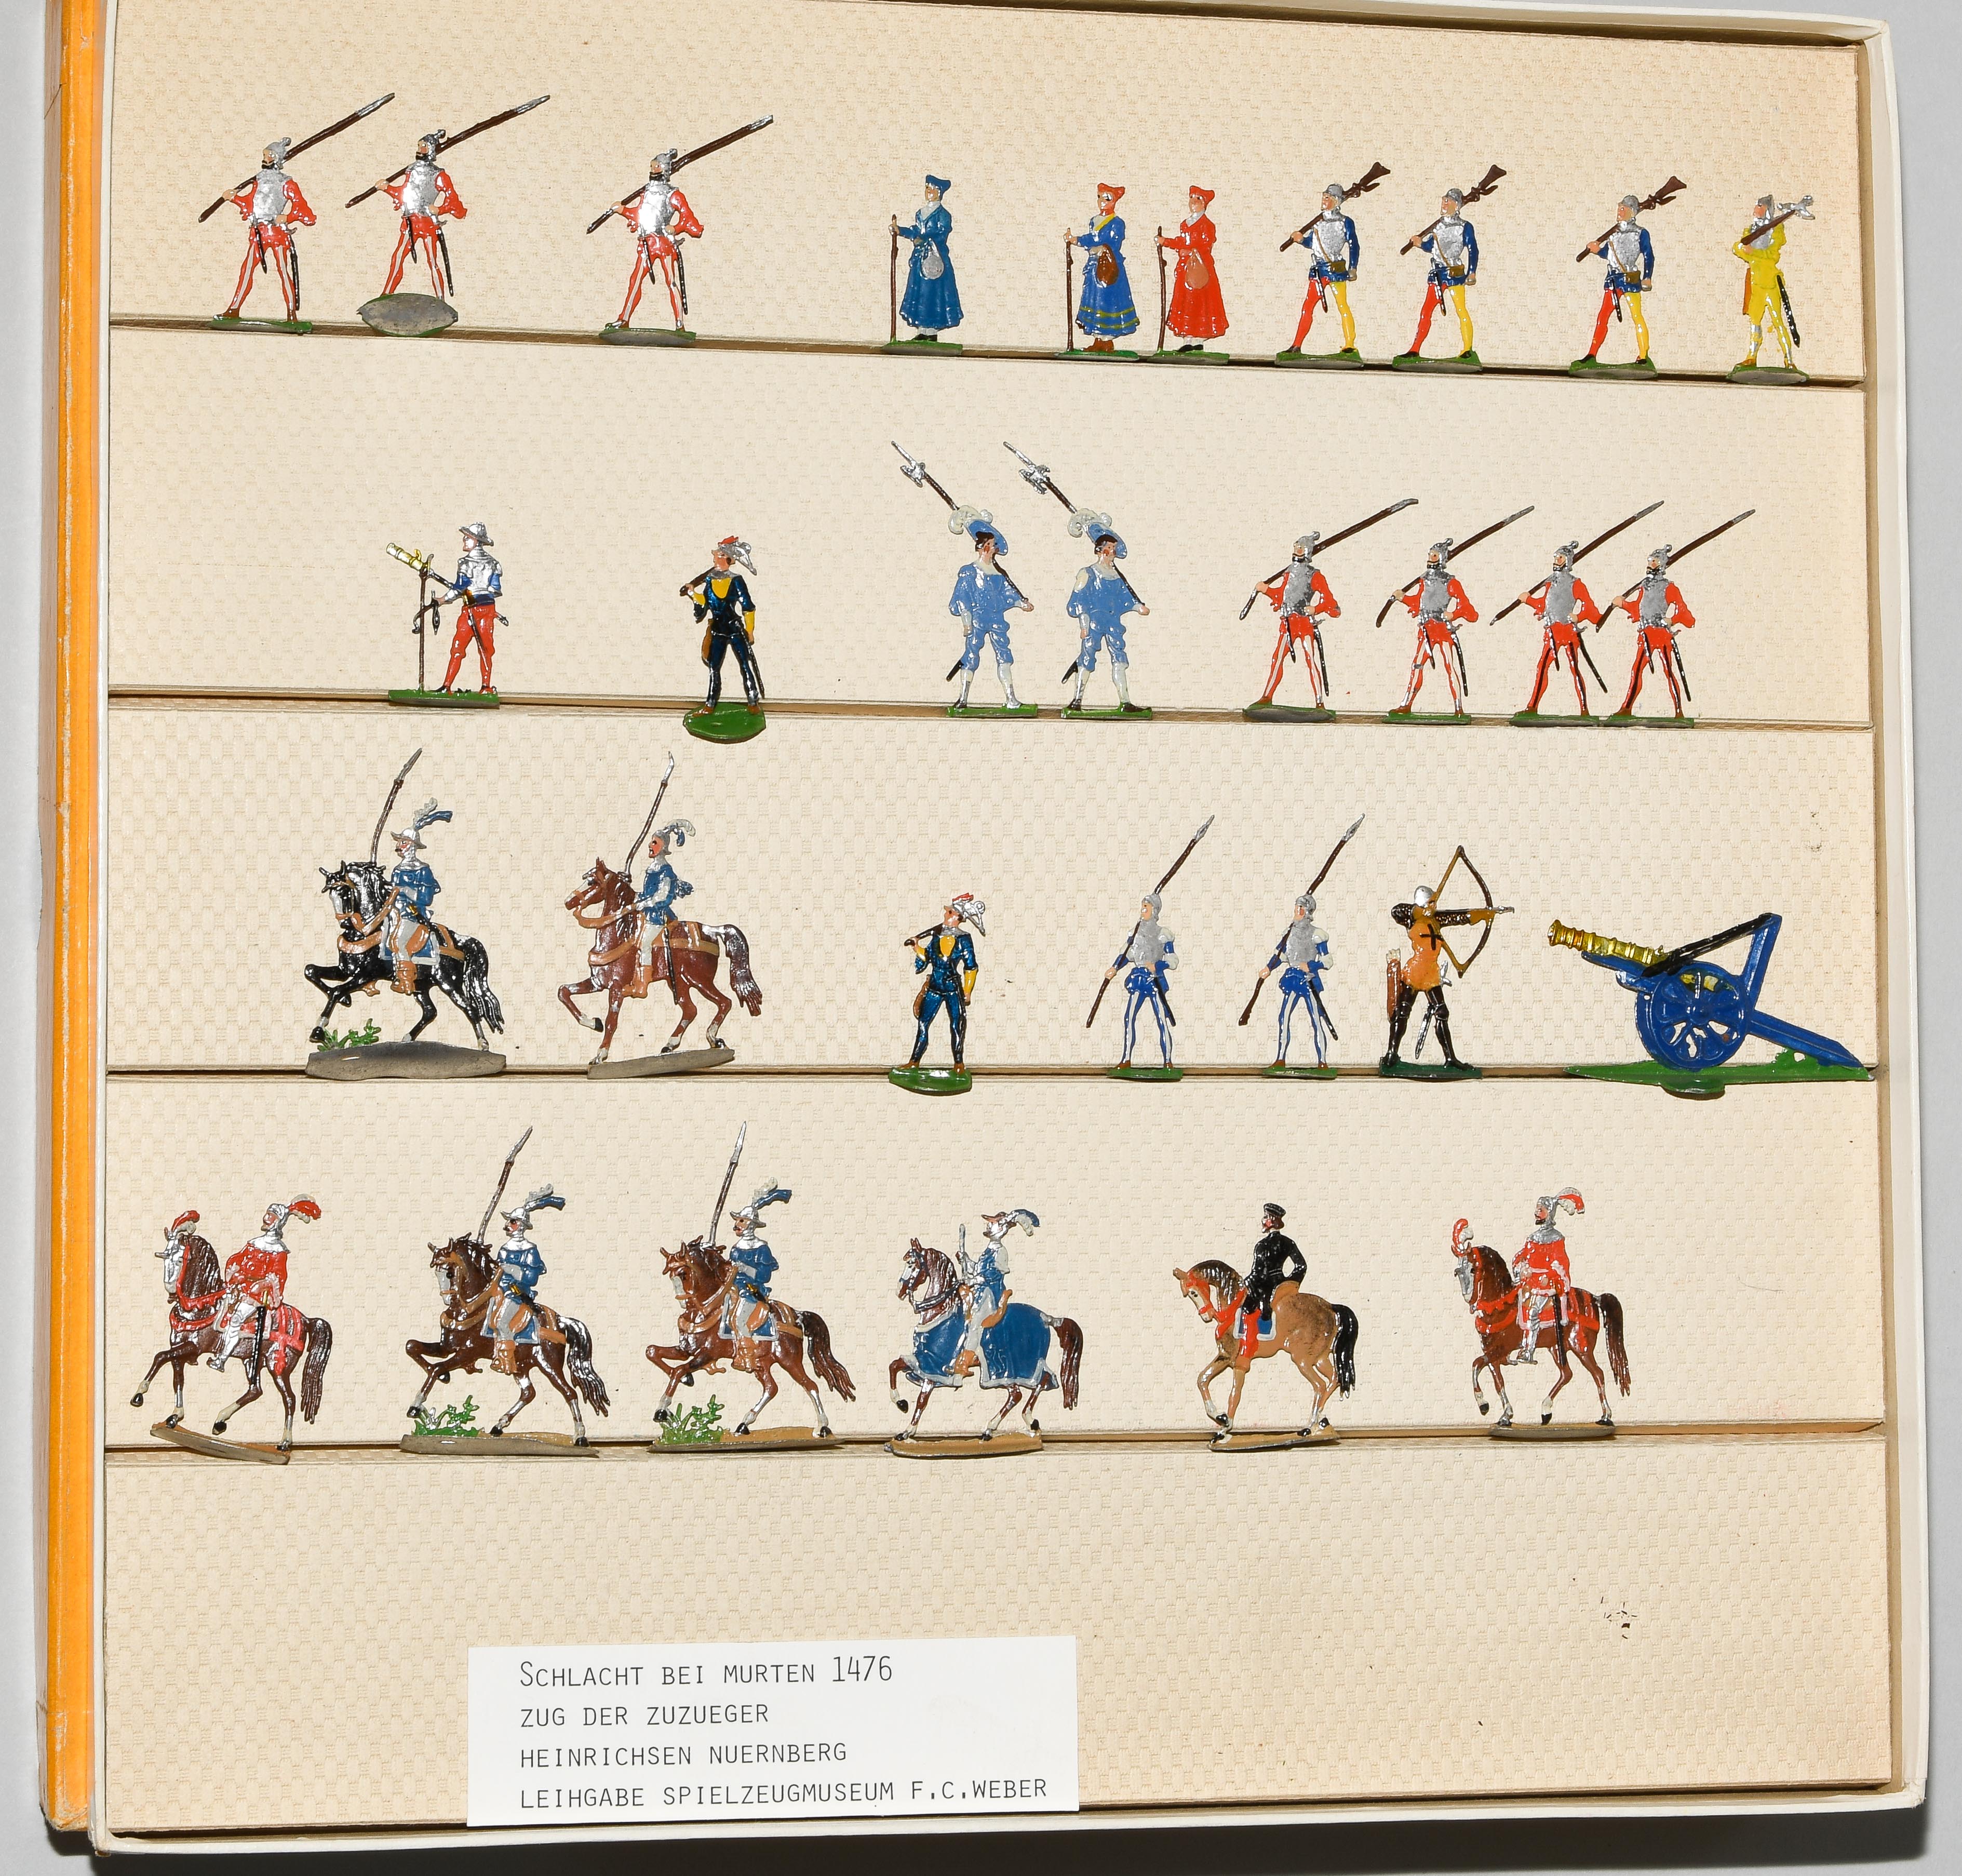 SCHLACHT BEI MURTEN 1476
ZUG DER ZUZUEGER
HEINRICHSEN NUERNBERG
LEIHGABE SPIELZEUGMUSEUM F.C.WEBER